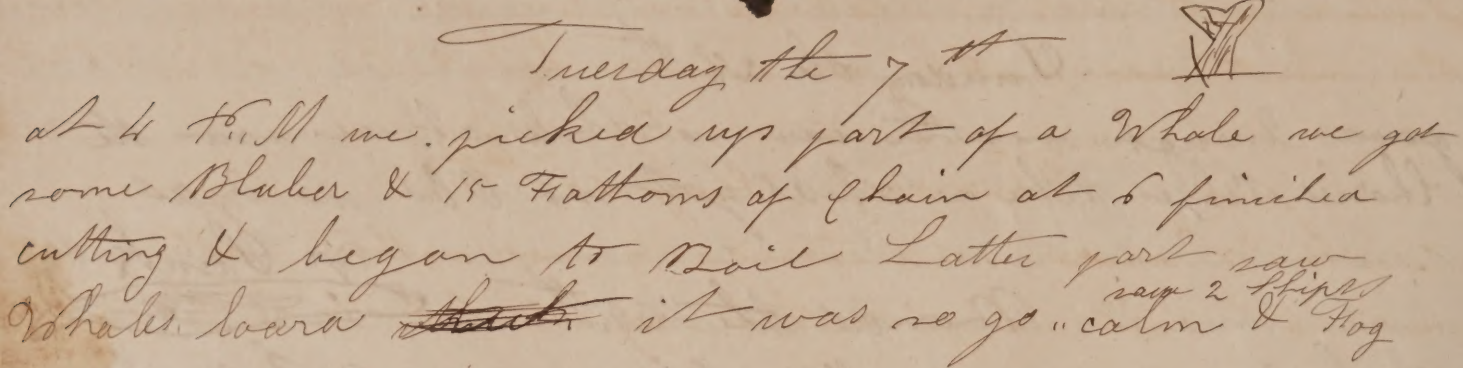 Tuesday the 7th
at 4 P.M we picked up part of a Whale we got
some Bluber & 15 Fathoms of Chain at 6 finished
cutting & began to Boil Latter part saw
saw 2 Ships
Whales. loard it was no go „ calm & Fog